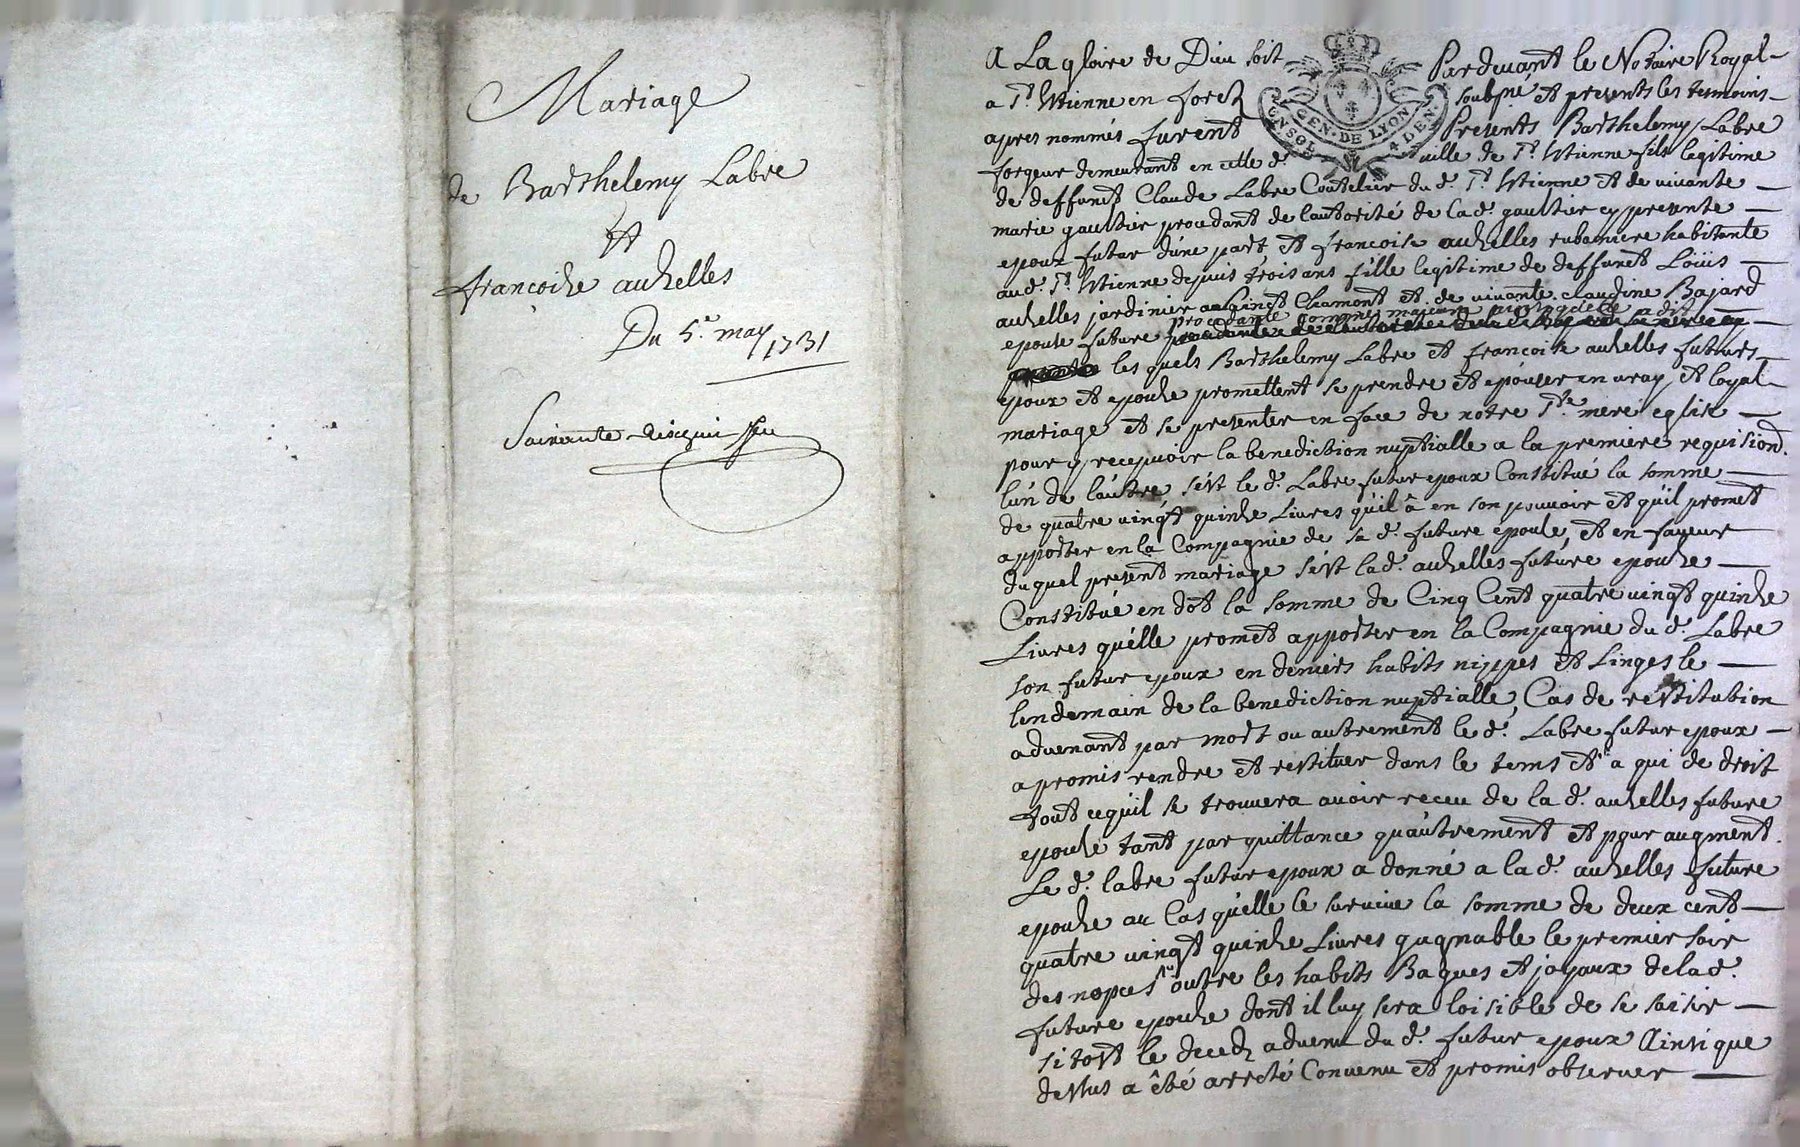 Mariage
de Barthelemy Labre
Et
françoise auzelles
Du 5.e may 1731
Soixante
A La gloire de Dieu soit Pardevant le Notaire Royal
a St. Etienne en forez soubsné et presents les temoins
apres nommés furent Presents Barthelemy Labre
forgeur demeurant en cette d. ville de St. Etienne fils legitime
de deffunct Claude Labre Coutelier du d. St. Etienne et de vivante
marie gaultier procedant de lautorité de la d. gaultier cy presente
epoux futur d'une part et francoise auzelles rubaniere habitante
au d. St. Etienne depuis trois ans fille legitime de deffunct Loüis
auzelles jardinier a Sainct Chamont et de vivante claudine Bajard
procedante comme
epouse future
les quels Barthelemy Labre et francoise auzelles futurs
epoux et epouze promettent se prendre et epouser en vray et loyal
mariage et se presenter en face de notre Ste. mere eglise
pour y recepvoir la benediction nuptialle a la premiere requisiond.
lun de lautre, s'est le d. Labre futur epoux Constitué la somme
de quatre vingt quinze Livres qu'il â en son pouvoir et qu'il promet
apporter en la Compagnie de sa d. future epouse, et en faveur
du quel present mariage s'est la d. auzelles future epouze
Constitué en dot la somme de Cinq Cent quatre vingt quinze
Livres qu'elle promet apporter en la Compagnie du d. Labre
son futur epoux en deniers habits nippes et Linges le
lendemain de la benediction nuptialle, Cas de restitution
advenant par mort ou autrement le d. Labre futur epoux
a promis rendre et restituer dans le tems et a qui de droit
tout ce qu'il se trouvera avoir receu de la d. auzelles future
epouze tant par quittance qu'autrement et pour augment.
Le d. labre futur epoux a donné a la d. auzelles future
epouze au Cas qu'elle le survive la somme de deux cent
quatre vingt quinze Livres gagnable le premier soir
des nopces outre les habits Bagues et joyaux de la d.
future epouze dont il luy sera loisible de se saisir
sitost le decedz advenu du d. futur epoux Ainsi que
dessus a êté arreté Convenu et promis observer
GEN. DE LYON
4 DEN.